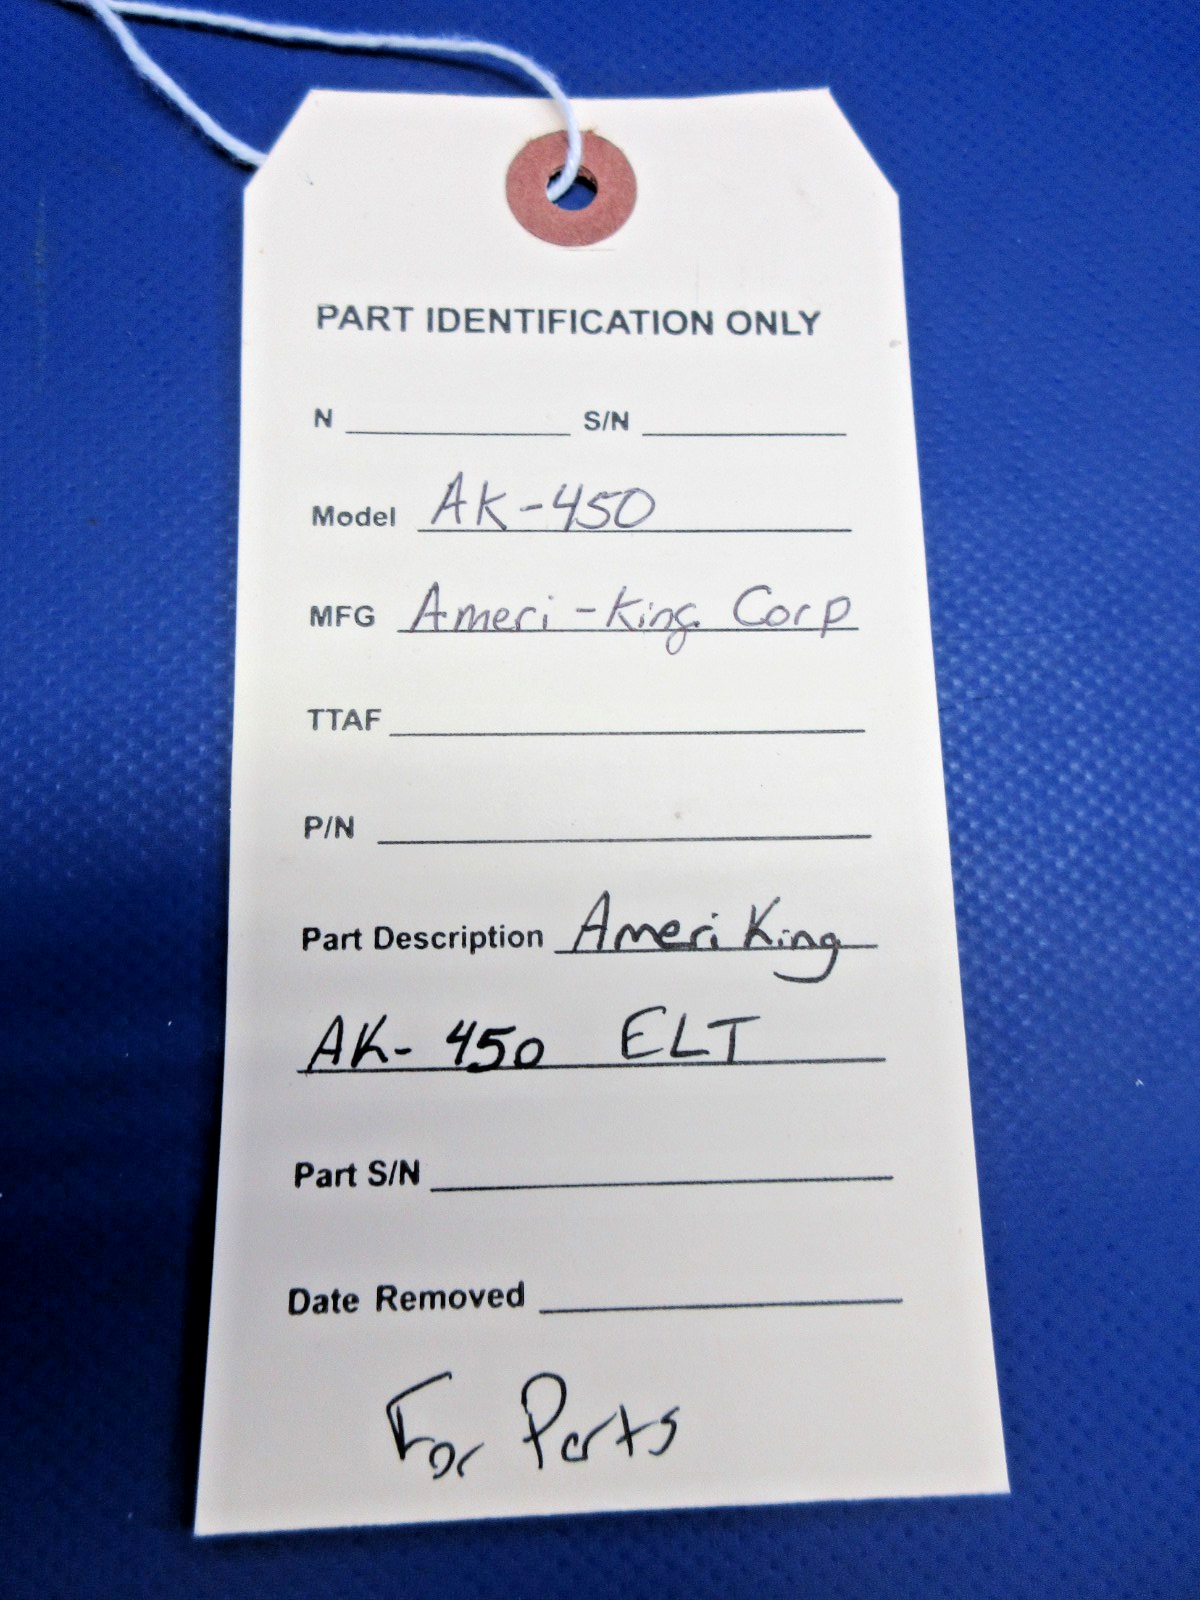 PART IDENTIFICATION ONLY
N ____________ S/N ____________
Model AK-450
MFG Ameri-King Corp
TTAF ____________
P/N ____________
Part Description Ameri King
AK-450 ELT
Part S/N ____________
Date Removed ____________
For Parts